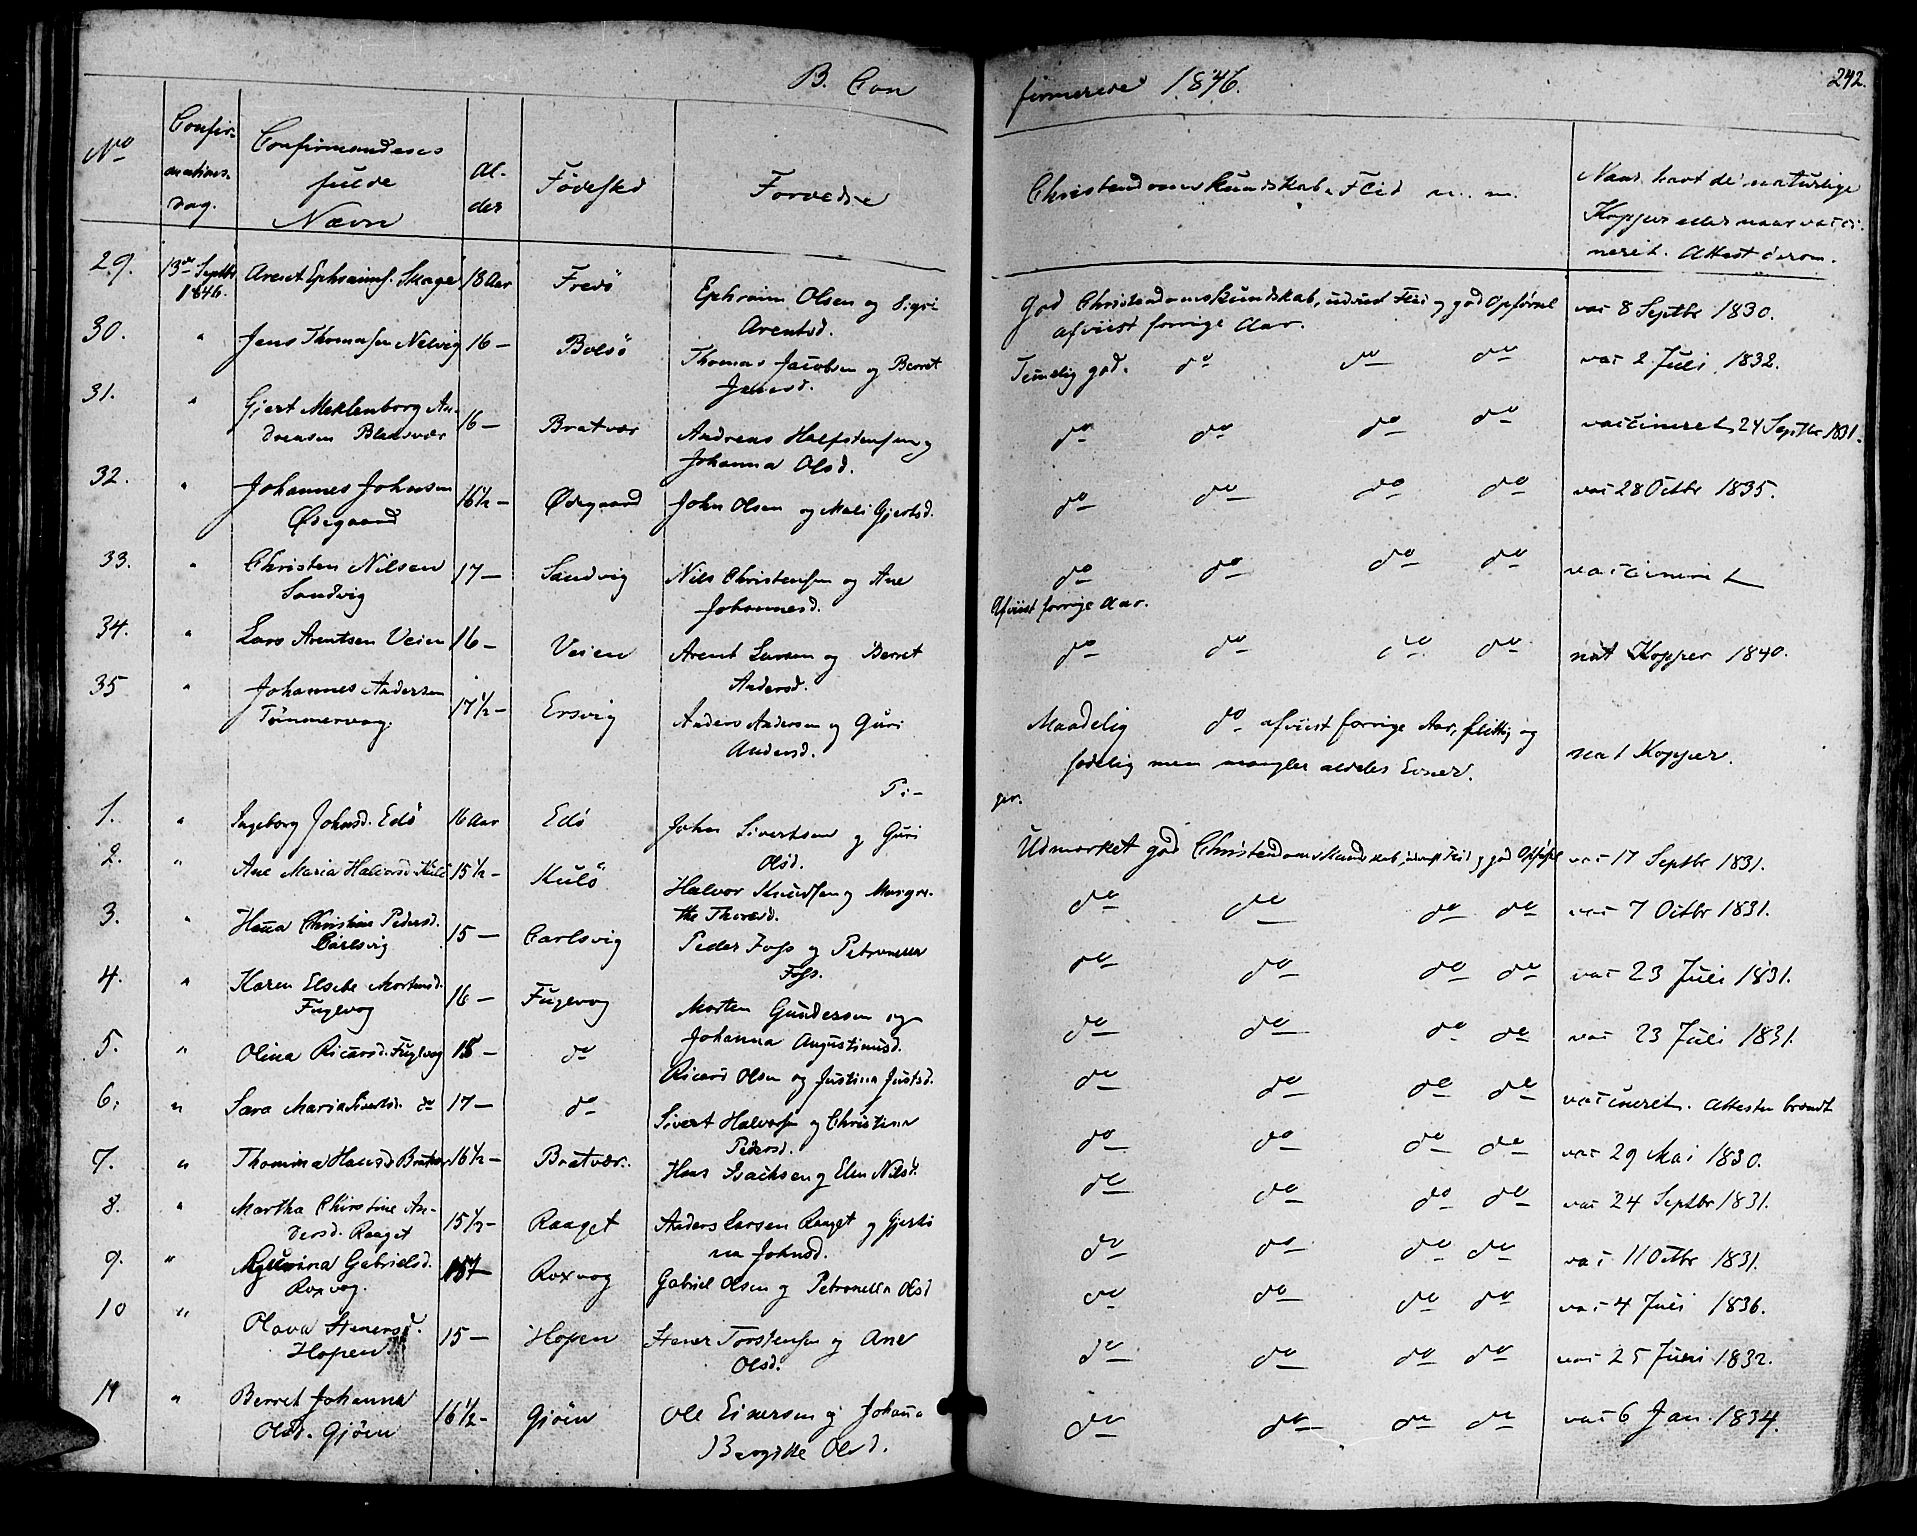 B. Con firmerede 1846. 242.
No Confirmations dag. Confirmandenes fulde Navn Alder Födested Forældre Christendomskundskab, Flid m. m. Naar havt de naturlige Kopper eller naar vaccineret. Attest derom.
29. 13de Septbr 1846. Arent Ephraims. Skage 18 Aar Fredö Ephraim Olsen og Sigri Arentsd. God Christendomskundskab, udviist Flid og god Opförsel afviist forrige Aar. vac 8 Septbr 1830.
30. " Jens Thomasen Nelvig 16 — Bolsö Thomas Jacobsen og Berret Jensd. Temelig god. do do do vac 2 Juli 1832.
31. " Gjert Meklenborg Andreasen Blaksvær 16 — Bratvær Andreas Halfstensen og Johanna Olsd. do do do do vaccineret 24 Septbr 1831.
32. " Johannes Johnsen Ødegaard 16½ — Ødegaard John Olsen og Mali Gjertsd. do do do do vac 28 Octbr 1835.
33. " Christen Nilsen Sandvig 17 — Sandvig Nils Christensen og Ane Johannesd. do do do do vaccineret
Afviist forrige Aar.
34. " Lars Arentsen Veien 16 — Veien Arent Larsen og Berret Andersd. do do do do nat Kopper 1840.
35 " Johannes Andersen Tömmervag. 17½ — Ersvig Anders Andersen og Guri Andersd. Maadelig do afviist forrige Aar, flittig og sædelig men mangler aldeles Evner. nat Kopper.
Pi- ger.
1. " Ingeborg Johnsd. Edö 16 Aar Edö John Sivertsen og Guri Olsd. Udmærket god Christendomskundskab, udviist Flid og god Opførsel vac 17 Septbr 1831.
2. " Ane Maria Halvorsd. Kulö 15½ — Kulö Halvor Knudsen og Margrethe Thoresd. do do do do vac 7 Octbr 1831.
3. " Hanna Christine Pedersd. Carlsvig 15 — Carlsvig Peder Foss og Petronelle Foss. do do do do vac 23 Juli 1831.
4. " Karen Elsebe Mortensd. Fuglevog 16 — Fuglevog Morten Gundersen og Johanna Augustinusd. do do do do vac 23 Juli 1831.
5. " Olina Ricarsd. Fuglvog 18 — do Ricard Olsen og Justina Justsd. do do do do vaccineret. Attesten brændt
6. " Sara Maria Sivertsd. do 17 — do Sivert Halvorsen og Christine Pedersd. do do do do vac 29 Mai 1830.
7. " Thomina Hansd. Bratvær 16½ — Bratvær. Hans Isachsen og Elen Nilsd. do do do do vac 24 Septbr 1831.
8. " Martha Christine Andersd. Raaget 15½ — Raaget Anders Larsen Raaget og Gjertina Johnsd. do do do do vac 11 Octbr 1831.
9. " Gabrielsd. Roxvog. 15 — Roxvog Gabriel Olsen og Petronella Olsd do do do do vac 4 Juli 1836.
10 " Olava Stenersd. Hopen 15 — Hopen Stener Torstensen og Ane Olsd. do do do do vac 25 Juni 1832.
11 " Berret Johanna Olsd. Gjöen 16½ — Gjöen Ole Einersen og Johanna Bergitte Olsd. do do do do vac 6 Jan. 1834.